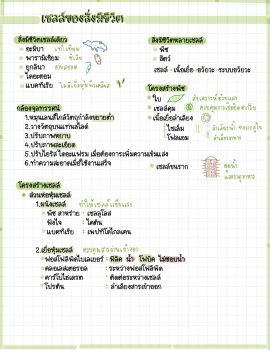 เซลล์ของสิ่งมีชีวิต
สิ่งมีชีวิตเซลล์เดียว
อะมีบา เท้าเทียม
พารามีเซียม ซิเลีย
ยูกลีนา
ไดอะตอม
แบคทีเรีย ไม่มีเยื่อหุ้มนิวเคลียส
สิ่งมีชีวิตหลายเซลล์
พืช
สัตว์
เซลล์ - เนื้อเยื่อ - อวัยวะ - ระบบอวัยวะ
กล้องจุลทรรศน์
1.หมุนเลนส์ใกล้วัตถุกำลังขยายต่ำ
2.วางวัตถุบนแท่นสไลด์
3.ปรับภาพหยาบ
4.ปรับภาพละเอียด
5.ปรับไอริส ไดอะแฟรม เมื่อต้องการเพิ่มความเข้มแสง
6.ทำความสะอาดเมื่อใช้งานเสร็จ
โครงสร้างพืช
ใบ
เซลล์คุม
เนื้อเยื่อลำเลียง
ไซเล็ม
โฟลเอม ลำเลียงอาหาร
เซลล์ขนราก ดูดน้ำ
และแร่ธาตุ
โครงสร้างเซลล์
ส่วนห่อหุ้มเซลล์
1.ผนังเซลล์ ทำให้เซลล์แข็งแรง
พืช สาหร่าย : เซลลูโลส
ฟังไจ : ไคติน
แบคทีเรีย : เพปทิโดไกลแคน
2.เยื่อหุ้มเซลล์ ควบคุมสารผ่านเข้าออก
ฟอสโฟลิพิดไบเลเยอร์ :
คอเลสเตอรอล : ระหว่างฟอสโฟลิพิด
คาร์โบไฮเดรต : ติดต่อระหว่างเซลล์
โปรตีน : ลำเลียงสารเข้าออก